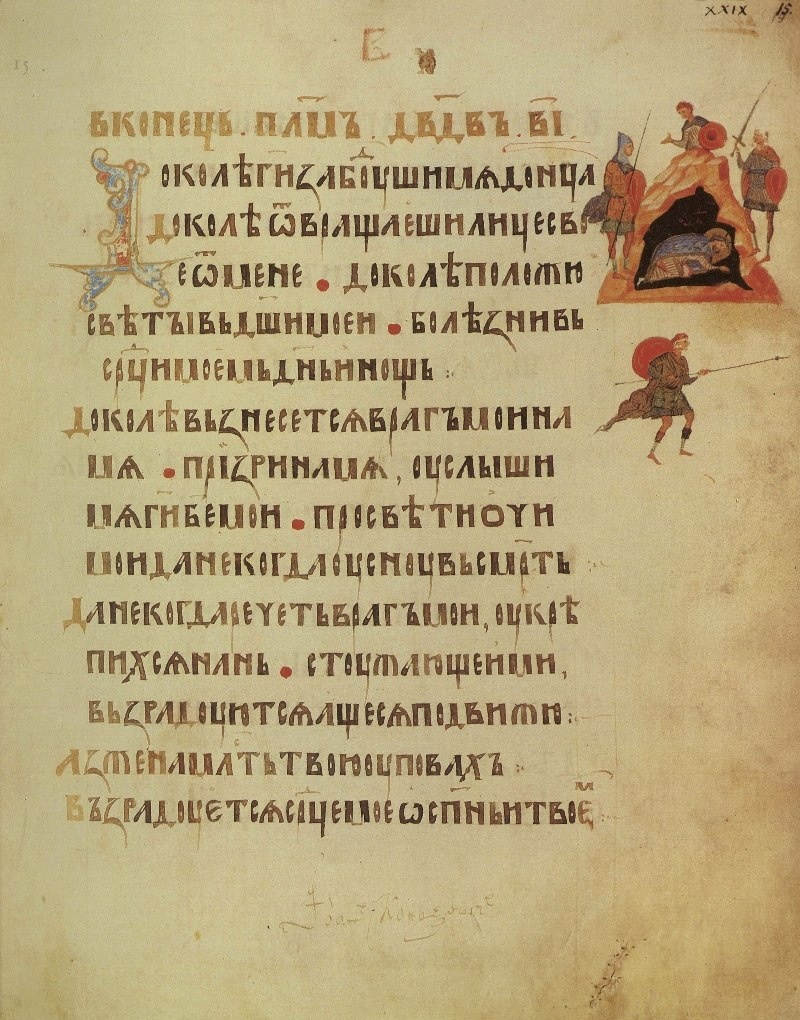 XXIX 15
15
В
вконець. пл҃мъ. дв҃двъ. в҃і.
Доколѣ г҃и забоушими ѧдоконца
доколѣ ѿвращаеши лице сво
е ѿ мене • доколѣ положю
свѣты в д҃ши моеи • болѣзни вь
ср҃ци моемь д҃нь и нощь :
доколѣ вьзнесетсѧ врагъ мои на
мѧ • призри на мѧ, оуслыши
мѧ г҃и б҃е мои • просвѣти очи
мои да некогда оусноу вь см҃рть
да некогда речеть врагъ мои, оукрѣ
пихсѧ нань • стоужающеи ми,
вьзрадоуютсѧ аще сѧ подвижю :
аз же на мл҃ть твою оуповахъ :
възрадоуетсѧ ср҃це мое ѡ сп҃ньи твоем